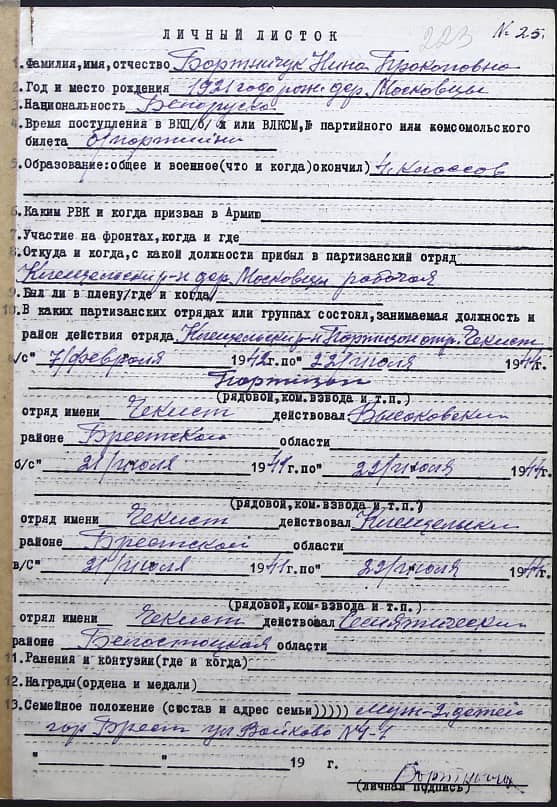 № 25.
223
ЛИЧНЫЙ ЛИСТОК
1.Фамилия,имя,отчество Бортничук Нина Прокоповна
2.Год и место рождения 1921 года рож. дер. Московцы
3.Национальность Белоруска
4.Время поступления в ВКП/б/ и или ВЛКСМ,№ партийного или комсомольского
билета б/партийная
5.Образование:общее и военное(что и когда)окончил) 4 классов
6.Каким РВК и когда призван в Армию
7.Участие на фронтах,когда и где
8.Откуда и когда,с какой должности прибыл в партизанский отряд
Клещельский р-н дер. Московцы рабочая
9.Был ли в плену/где и когда/
10.В каких партизанских отрядах или группах состоял,занимаемая должность и
район действия отряда Клещельский р-н Партизан отр. Чекист
а/с" 7/февраля 1942г.по" 22/июля 1944
Партизан
(рядовой,ком.взвода и т.п.)
отряд имени Чекист действовал Высоковский
районе Брестской области
б/с" 21/июля 1941г.по" 22/июля 1944г.
(рядовой,ком.взвода и т.п.)
отряд имени Чекист действовал Клещельский
районе Брестской области
в/С" 21/июля 1941г.по" 22/июля 1944г.
(рядовой,ком.взвода и т.п.)
отряд имени Чекист действовал Семятический
районе Белостоцкая области
11.Ранения и контузии(где и когда)
12.Награды(ордена и медали)
13.Семейное положение (состав и адрес семьи))))) Муж-2 детей
гор Брест ул Войково №
" " 19 г.
(личная подпись)